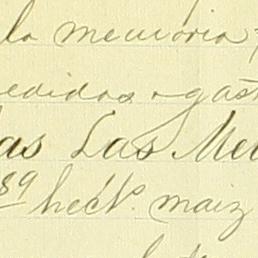 la memoria
edidos a gast
as Las Me
89 hect.s maiz